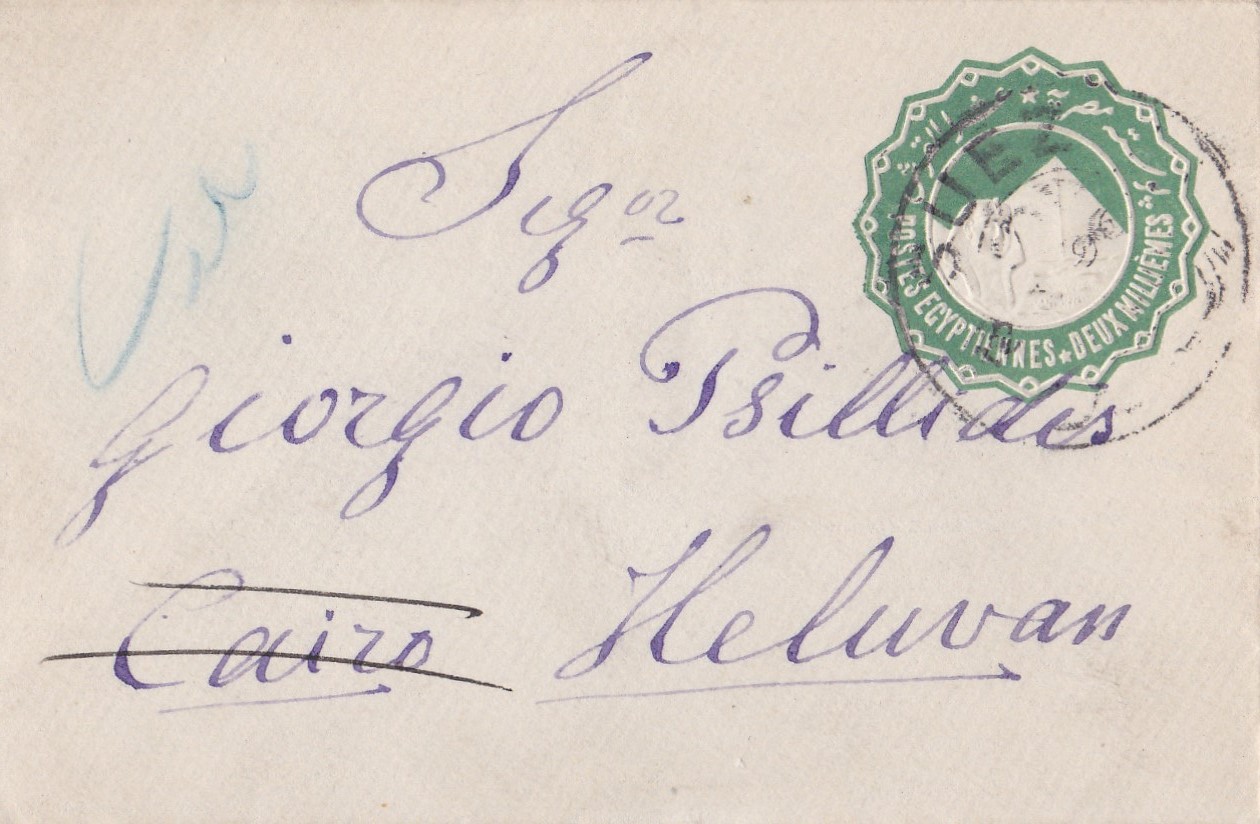 Sigor
Giorgio Psillidis
Cairo Heluvan
POSTES EGYPTIENNES ★ DEUX MILLIÈMES
SUEZ